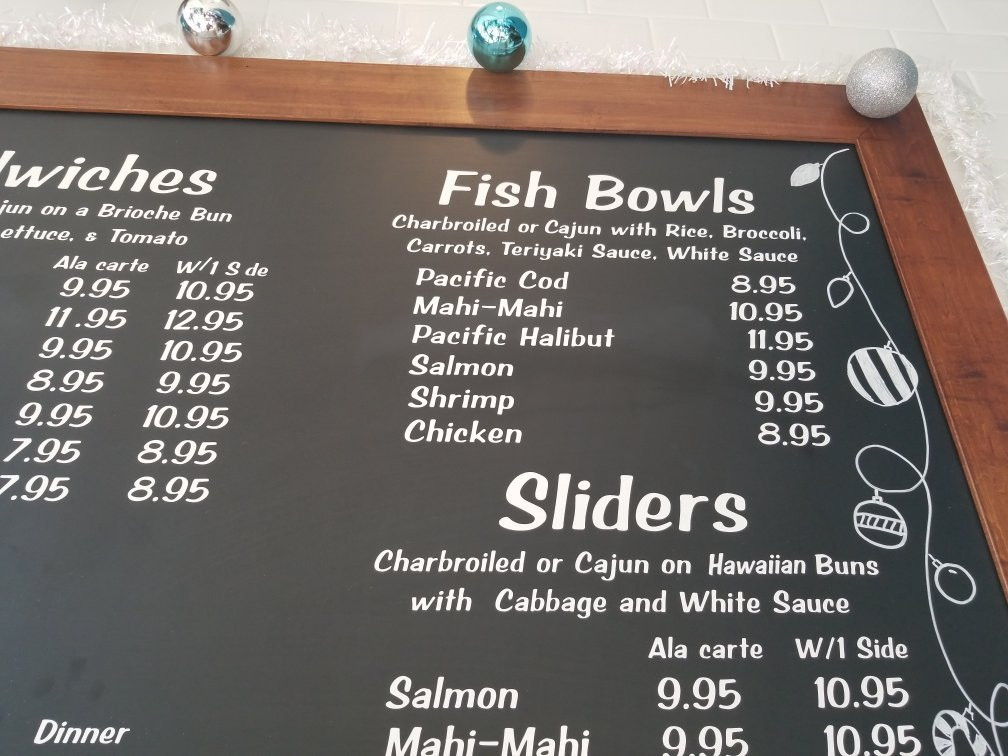 jun on a Brioche Bun
& Tomato
Ala carte W/1 S de
9.95 10.95
11.95 12.95
9.95 10.95
8.95 9.95
9.95 10.95
7.95 8.95
7.95 8.95
Dinner
Fish Bowls
Charbroiled or Cajun with Rice, Broccoli,
Carrots, Teriyaki Sauce, White Sauce
Pacific Cod 8.95
Mahi-Mahi 10.95
Pacific Halibut 11.95
Salmon 9.95
Shrimp 9.95
Chicken 8.95
Sliders
Charbroiled or Cajun on Hawaiian Buns
with Cabbage and White Sauce
Ala carte W/1 Side
Salmon 9.95 10.95
Mahi-Mahi 9.95 10.95